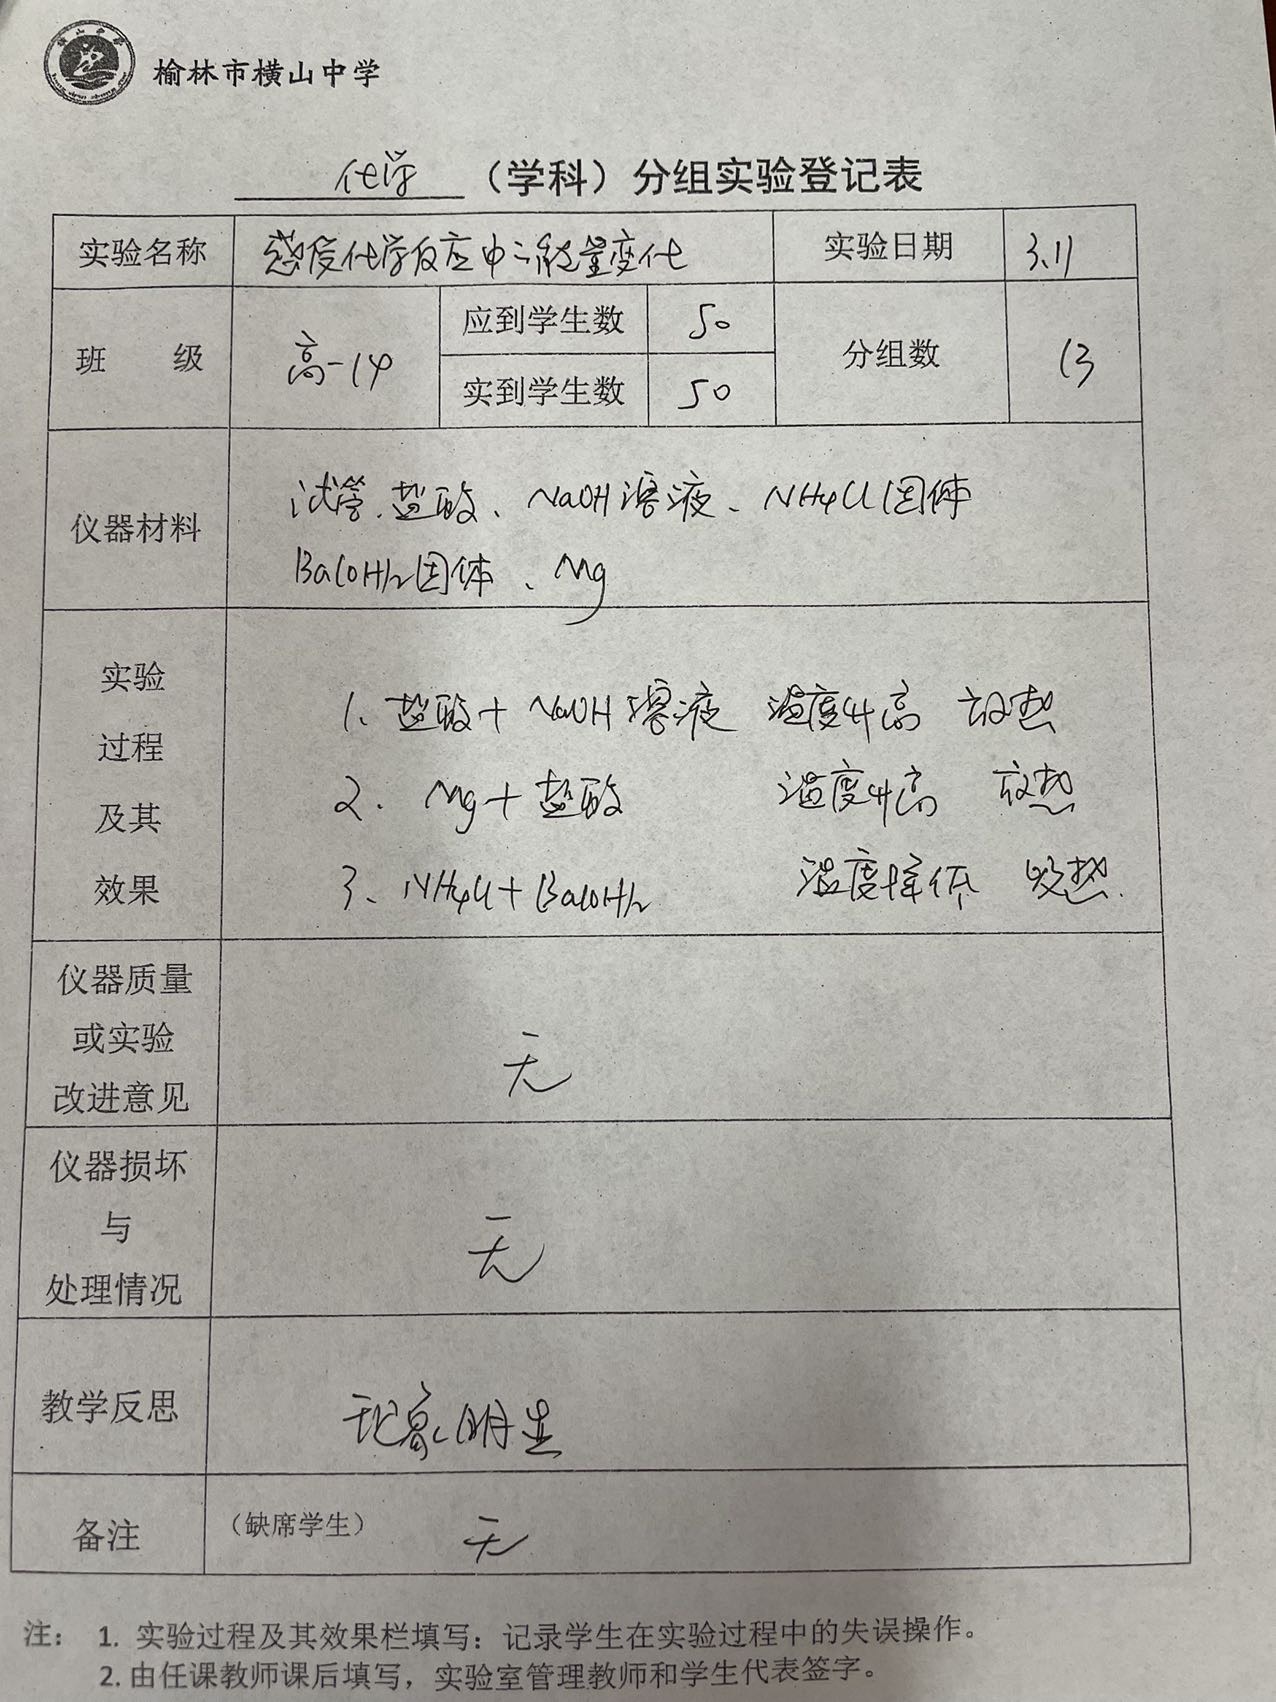 榆林市横山中学
化学（学科）分组实验登记表
实验名称 感受化学反应中的能量变化 实验日期 3.11
班 级 高一14 应到学生数 50 分组数 13
实到学生数 50
仪器材料 试管、盐酸、NaOH溶液、NH4Cl固体
Ba(OH)2固体、Mg
实验
过程
及其
效果
1、盐酸+NaOH溶液 温度升高 放热
2、Mg+盐酸 温度升高 放热
3、NH4Cl+Ba(OH)2 温度降低 吸热.
仪器质量
或实验
改进意见
无
仪器损坏
与
处理情况
无
教学反思 现象明显
备注 （缺席学生） 无
注： 1. 实验过程及其效果栏填写：记录学生在实验过程中的失误操作。
2.由任课教师课后填写，实验室管理教师和学生代表签字。